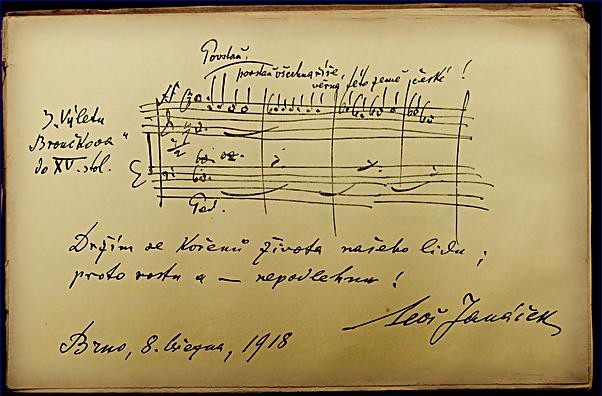 Povstaň,
povstaň všechna říše,
věrná této země české!
Z „Výletu
Broučkova“
do XV. stol.
Ped.
Držím se kořenů života našeho lidu;
proto rostu a — nepodlehnu!
Leoš Janáček
Brno, 8. 1918